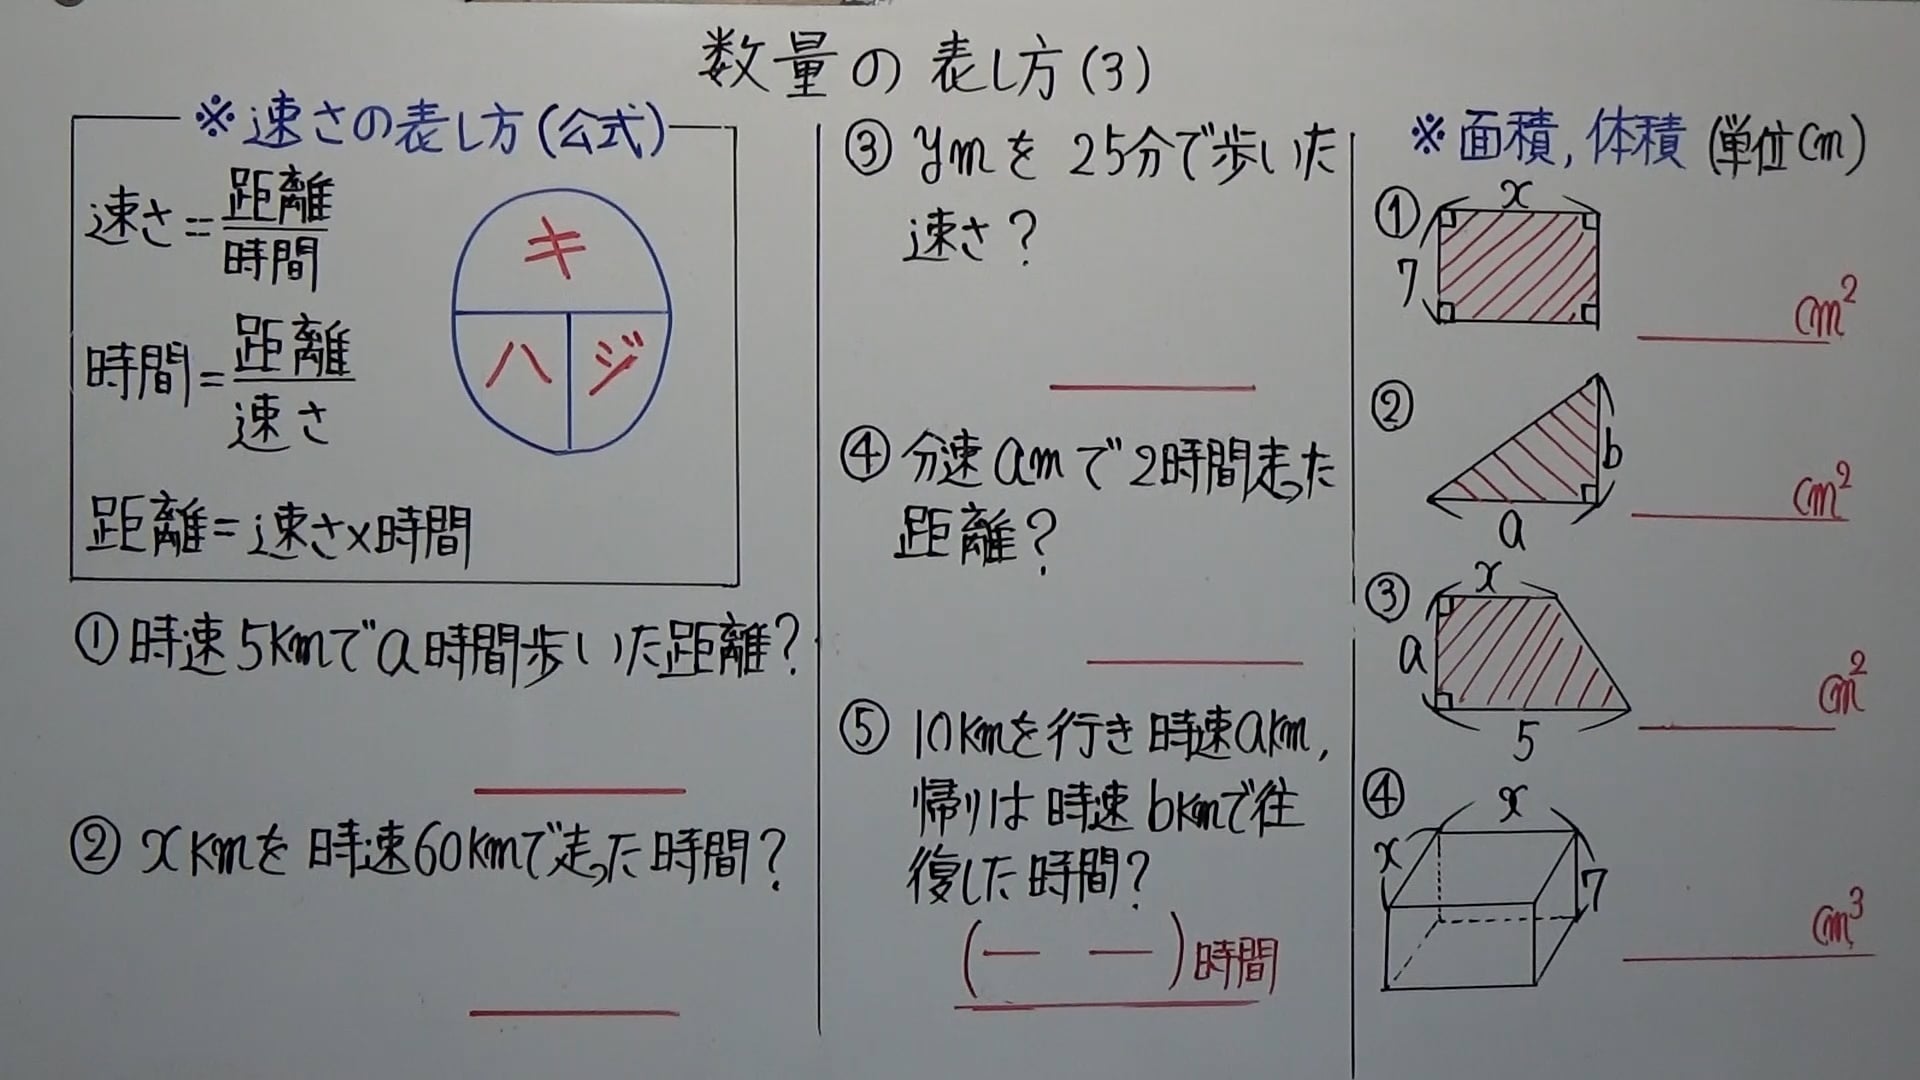 数量の表し方(3)
※速さの表し方(公式)
速さ=距離/時間
時間=距離/速さ
距離=速さ×時間
キ
ハ ジ
①時速5kmでa時間歩いた距離?
②xkmを時速60kmで走った時間?
③ymを25分で歩いた
速さ?
④分速amで2時間走った
距離?
⑤10kmを行き時速akm,
帰りは時速bkmで往
復した時間?
(— —)時間
※面積,体積(単位cm)
① x
7
cm²
②
b
a
cm²
③ x
a
5
cm²
④ x
x
7
cm³